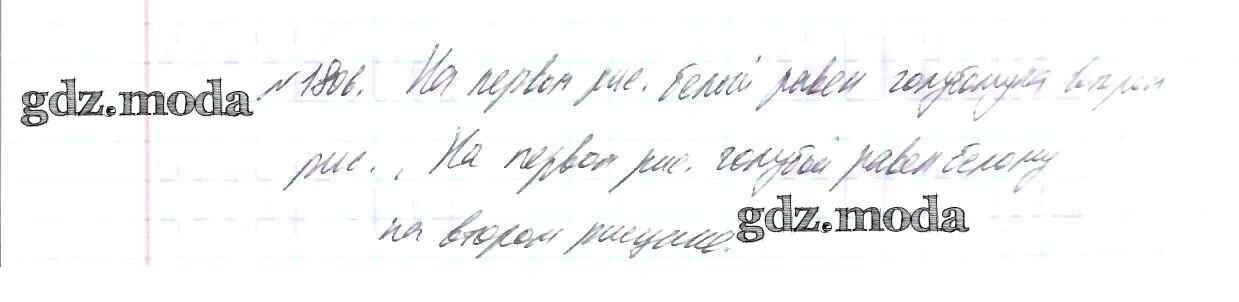 №1806. На первом рис. белый равен голубому на втором
gdz.moda
рис., На первом рис. голубой равен белому
gdz.moda
на втором рисунке.